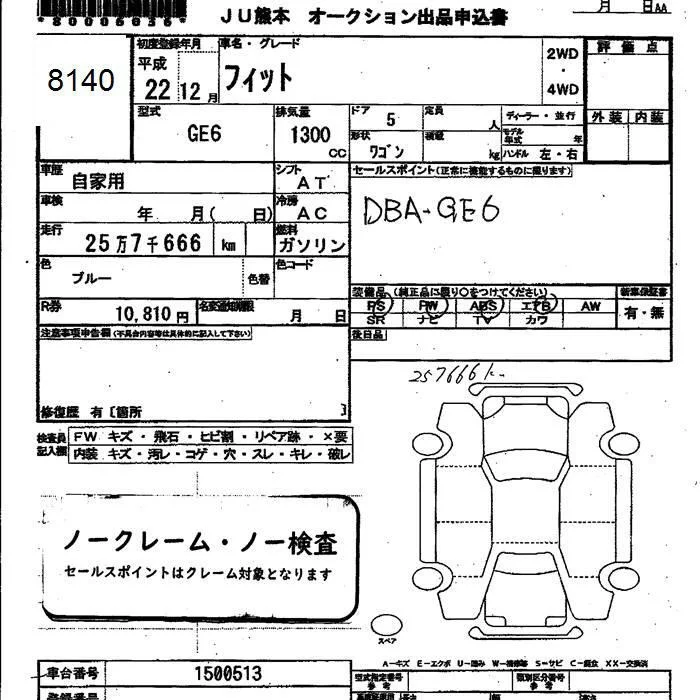 *80006036*
JU熊本 オークション出品申込書
月 日AA
8140
初度登録年月 車名・グレード
平成 22 12月
フィット
2WD
・
4WD
評価点
外装 内装
型式
GE6
排気量
1300
CC
ドア 5
定員 人
ディーラー・並行
形状 ワゴン
積載 kg
モデル年式 年
ハンドル 左・右
車歴 自家用
シフト AT
セールスポイント(正常に機能するものに限ります)
車検 年 月( 日)
冷房 AC
DBA-GE6
走行 25万7千666 km
燃料 ガソリン
色 ブルー
色替
色コード
装備品 (純正品に限り○をつけてください)
新車保証書
PS PW ABS エアB AW
有・無
SR ナビ TV カワ
R券 10,810円
名変通知期限 月 日
後日品
注意事項申告欄(不具合内容等は具体的に記入して下さい)
257666k
修復歴 有〔箇所 〕
検査員記入欄
FW キズ・飛石・ヒビ割・リペア跡・×要
内装 キズ・汚レ・コゲ・穴・スレ・キレ・破レ
ノークレーム・ノー検査
セールスポイントはクレーム対象となります
スペア
A-キズ E-エクボ U-凹み W-補修跡 S-サビ C-腐食 XX-交換済
車台番号 1500513
型式指定番号
類別区分番号
参考
参考
登録番号